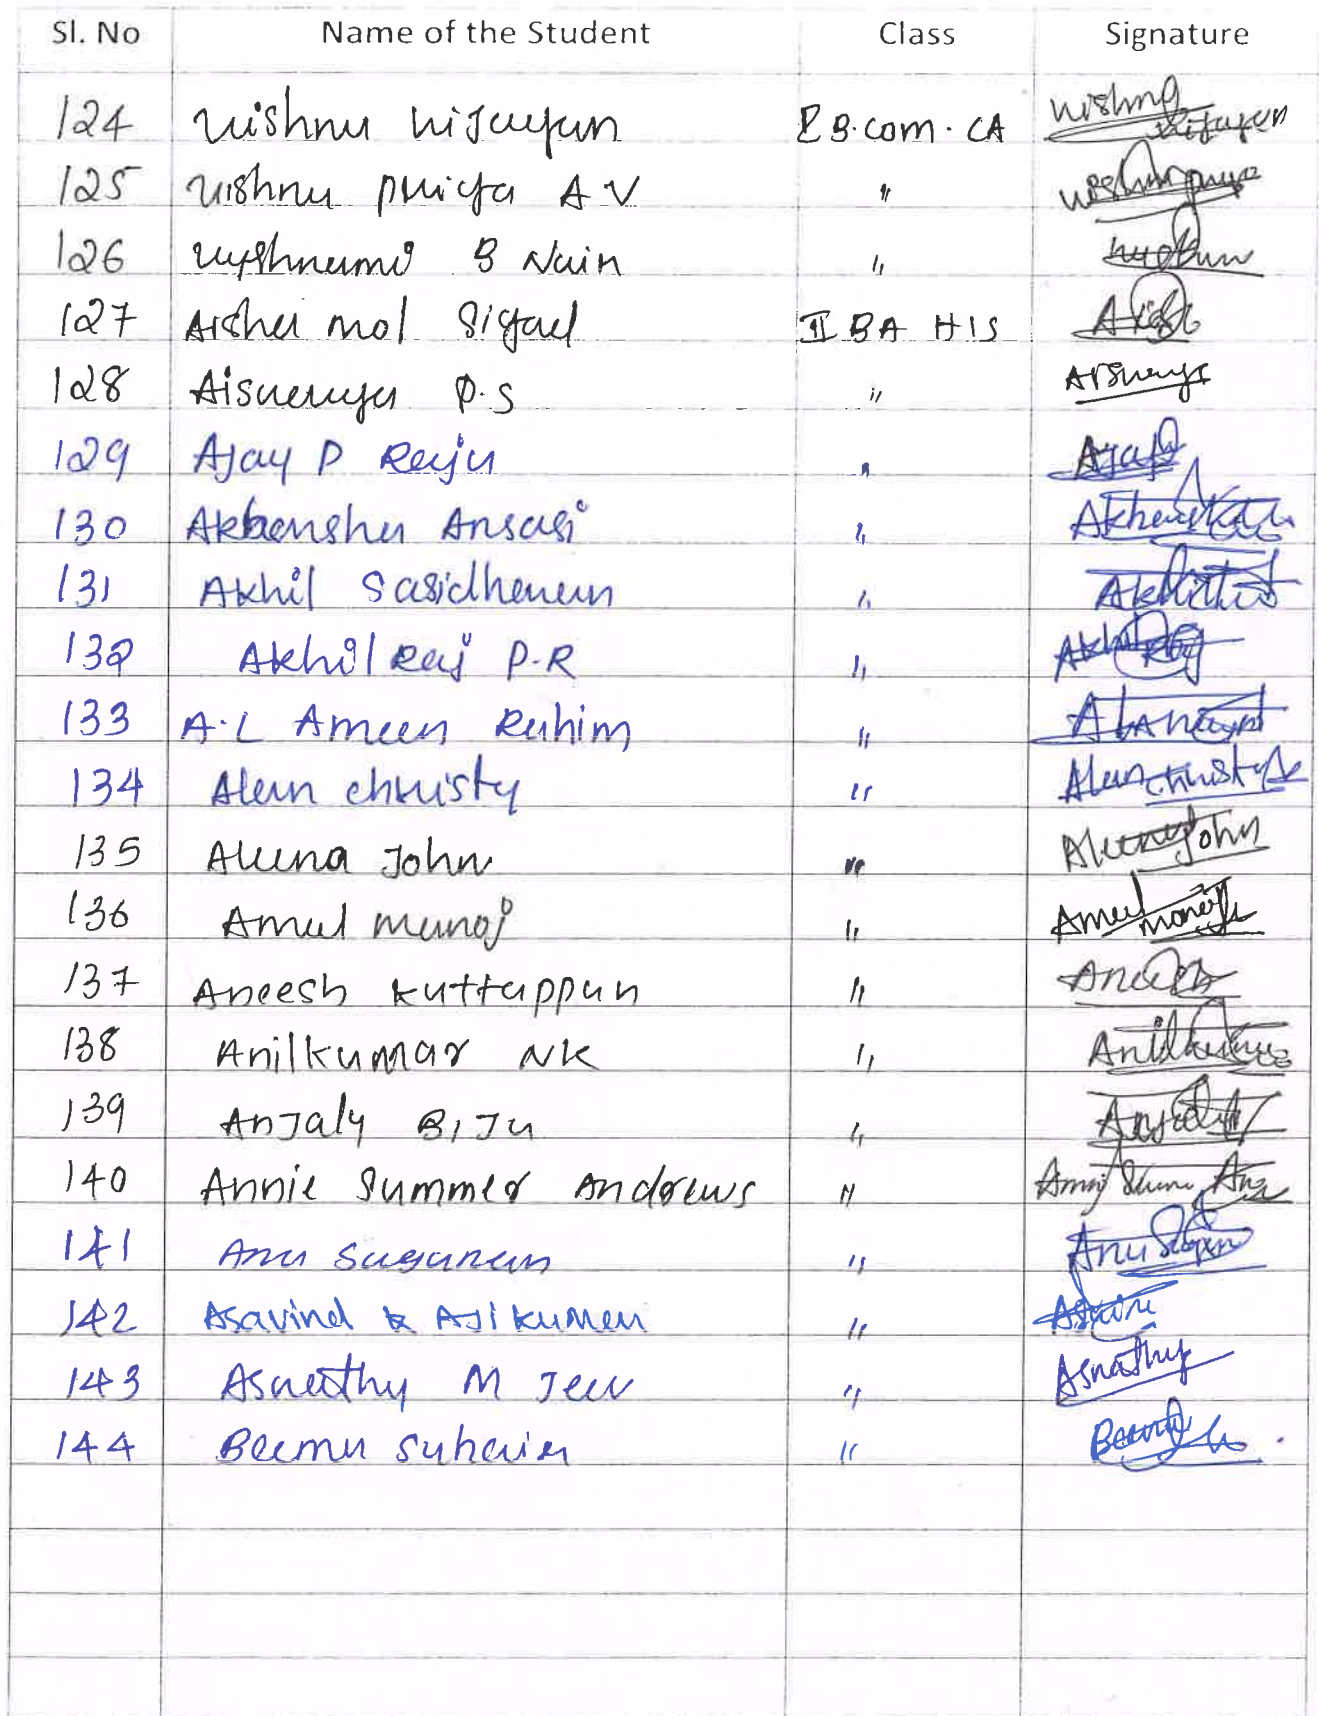 Sl. No Name of the Student Class Signature
124 Vishnu Vijayan B.com. CA Vishnu Vijayan
125 Vishnu priya A V " Vishnupriya
126 B Nair "
127 mol Siyad II BA HIS
128 Aiswarya P.S " Aiswarya
129 Ajay P Raju " Ajay
130 Akbarsha Ansari "
131 Akhil Sasidharan "
132 Akhil Raj P.R " Akhil Raj
133 A.L Ameen Rahim "
134 Alan christy " Alan christy
135 Aleena John " Aleena John
136 Amal manoj " Amal manoj
137 Aneesh kuttappan " Aneesh
138 Anilkumar NK " Anilkumar
139 Anjaly BiJu " Anjaly
140 Annie Summer Andrews "
141 Anu Sugunan "
142 Aravind K Ajikumar "
143 Aswathy M " Aswathy
144 Beema "